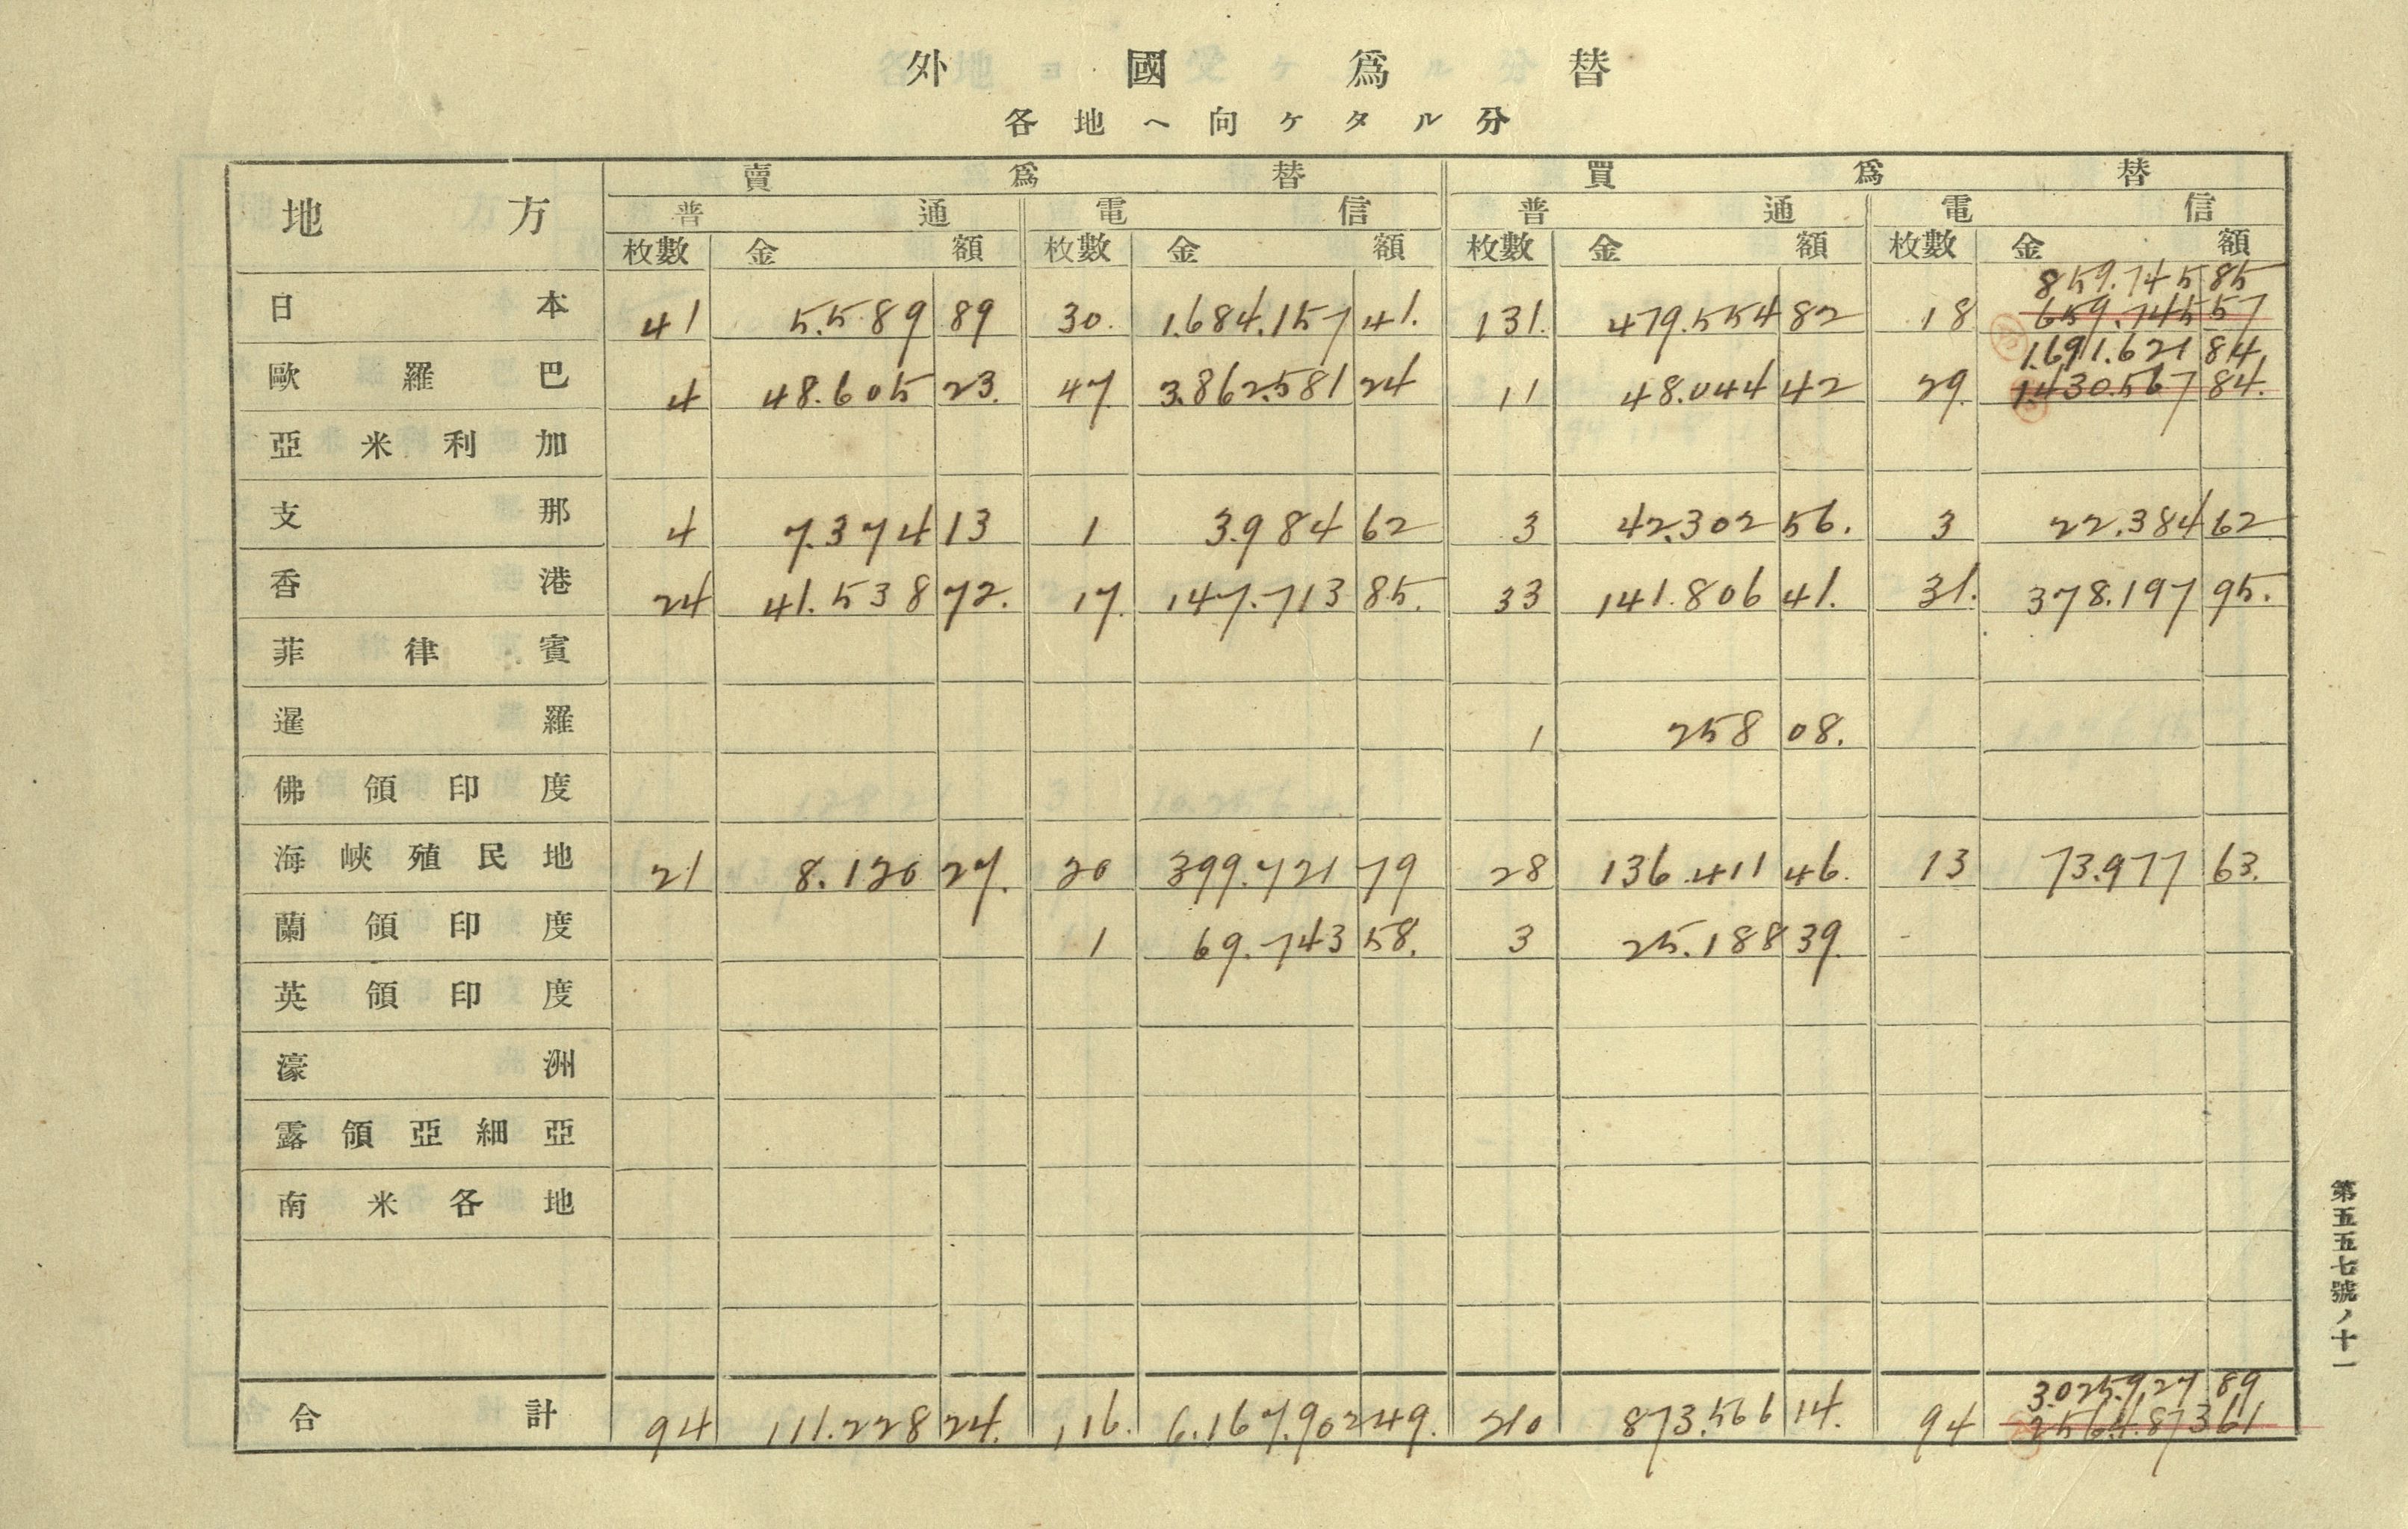 外國爲替
各地ヘ向ケタル分
地方 賣爲替 買爲替
普通 電信 普通 電信
枚數 金額 枚數 金額 枚數 金額 枚數 金額
859.745 85
日本 41 5.589 89 30. 1.684.157 41. 131. 479.554 82 18 659.745 57
1.691.621 84
歐羅巴 4 48.605 23. 47 3.862.581 24 11 48.044 42 29. 1.430.567 84.
亞米利加
支那 4 7.374 13 1 3.984 62 3 42.302 56. 3 22.384 62
香港 24 41.538 72. 17. 147.713 85. 33 141.806 41. 31. 378.197 95.
菲律賓
暹羅 1 258 08.
佛領印度
海峽殖民地 21 8.120 27. 20 399.721 79 28 136.411 46. 13 73.977 63.
蘭領印度 1 69.743 58. 3 25.188 39.
英領印度
濠洲
露領亞細亞
南米各地
3.025.927 89
合計 94 111.228 24. 116. 6.167.902 49. 210 873.566 14. 94 2.564.873 61
第五五七號ノ十一